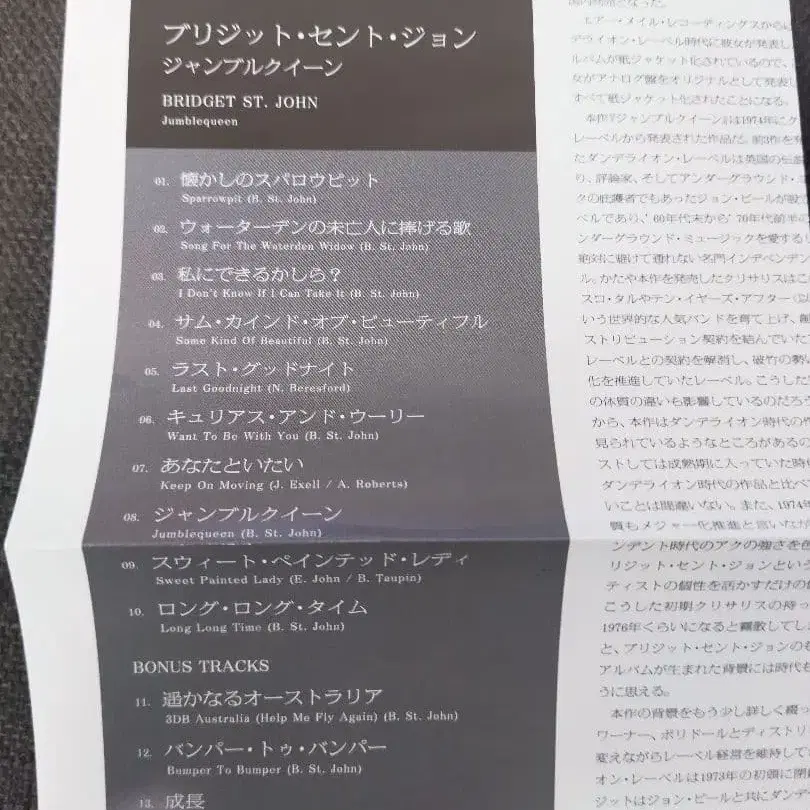 ブリジット・セント・ジョン
ジャンブルクイーン
BRIDGET ST. JOHN
Jumblequeen
01. 懐かしのスパロウピット
Sparrowpit (B. St. John)
02. ウォーターデンの未亡人に捧げる歌
Song For The Waterden Widow (B. St. John)
03. 私にできるかしら?
I Don't Know If I Can Take It (B. St. John)
04. サム・カインド・オブ・ビューティフル
Some Kind Of Beautiful (B. St. John)
05. ラスト・グッドナイト
Last Goodnight (N. Beresford)
06. キュリアス・アンド・ウーリー
Want To Be With You (B. St. John)
07. あなたといたい
Keep On Moving (J. Exell / A. Roberts)
08. ジャンブルクイーン
Jumblequeen (B. St. John)
09. スウィート・ペインテッド・レディ
Sweet Painted Lady (E. John / B. Taupin)
10. ロング・ロング・タイム
Long Long Time (B. St. John)
BONUS TRACKS
11. 遥かなるオーストラリア
3DB Australia (Help Me Fly Again) (B. St. John)
12. バンパー・トゥ・バンパー
Bumper To Bumper (B. St. John)
13. 成長
エアー・メイル・レコーディングスから
デライオン・レーベル時代に彼女が発表し
ルバムが紙ジャケット化されているので、
女がアナログ盤をオリジナルとして発表し
すべて紙ジャケット化されたことになる。
本作『ジャンブルクイーン』は1974年にク
レーベルから発表された作品だ。前3作を発
たダンデライオン・レーベルは英国の伝
り、評論家、そしてアンダーグラウンド・
クの庇護者でもあったジョン・ピールが設
ベルであり、60年代末から'70年代前半の
ンダーグラウンド・ミュージックを愛する
絶対に避けて通れない名門インデペンデン
ル。かたや本作を発売したクリサリスはご
スロ・タルやテン・イヤーズ・アフター
いう世界的な人気バンドを育て上げ、
ストリビューション契約を結んでいた
レーベルとの契約を解消し、破竹の勢
化を推進していたレーベル。こうした
の体質の違いも影響しているのだろう
から、本作はダンデライオン時代の作
見られているようなところがあるの
ストしては成熟期に入っていた時
ダンデライオン時代の作品と比べ
いことは間違いない。また、1974年
質もメジャー化推進と言いなが
ンデント時代のアクの強さを
リジット・セント・ジョンという
ティストの個性を活かすだけの
こうした初期クリサリスの持っ
1976年くらいになると霧散してし
と、ブリジット・セント・ジョンの
アルバムが生まれた背景には時代も
うに思える。
本作の背景をもう少し詳しく綴っ
ワーナー、ポリドールとディストリ
変えながらレーベル経営を維持して
オン・レーベルは1973年の初頭に閉
ジットはジョン・ピールと共にダンデ